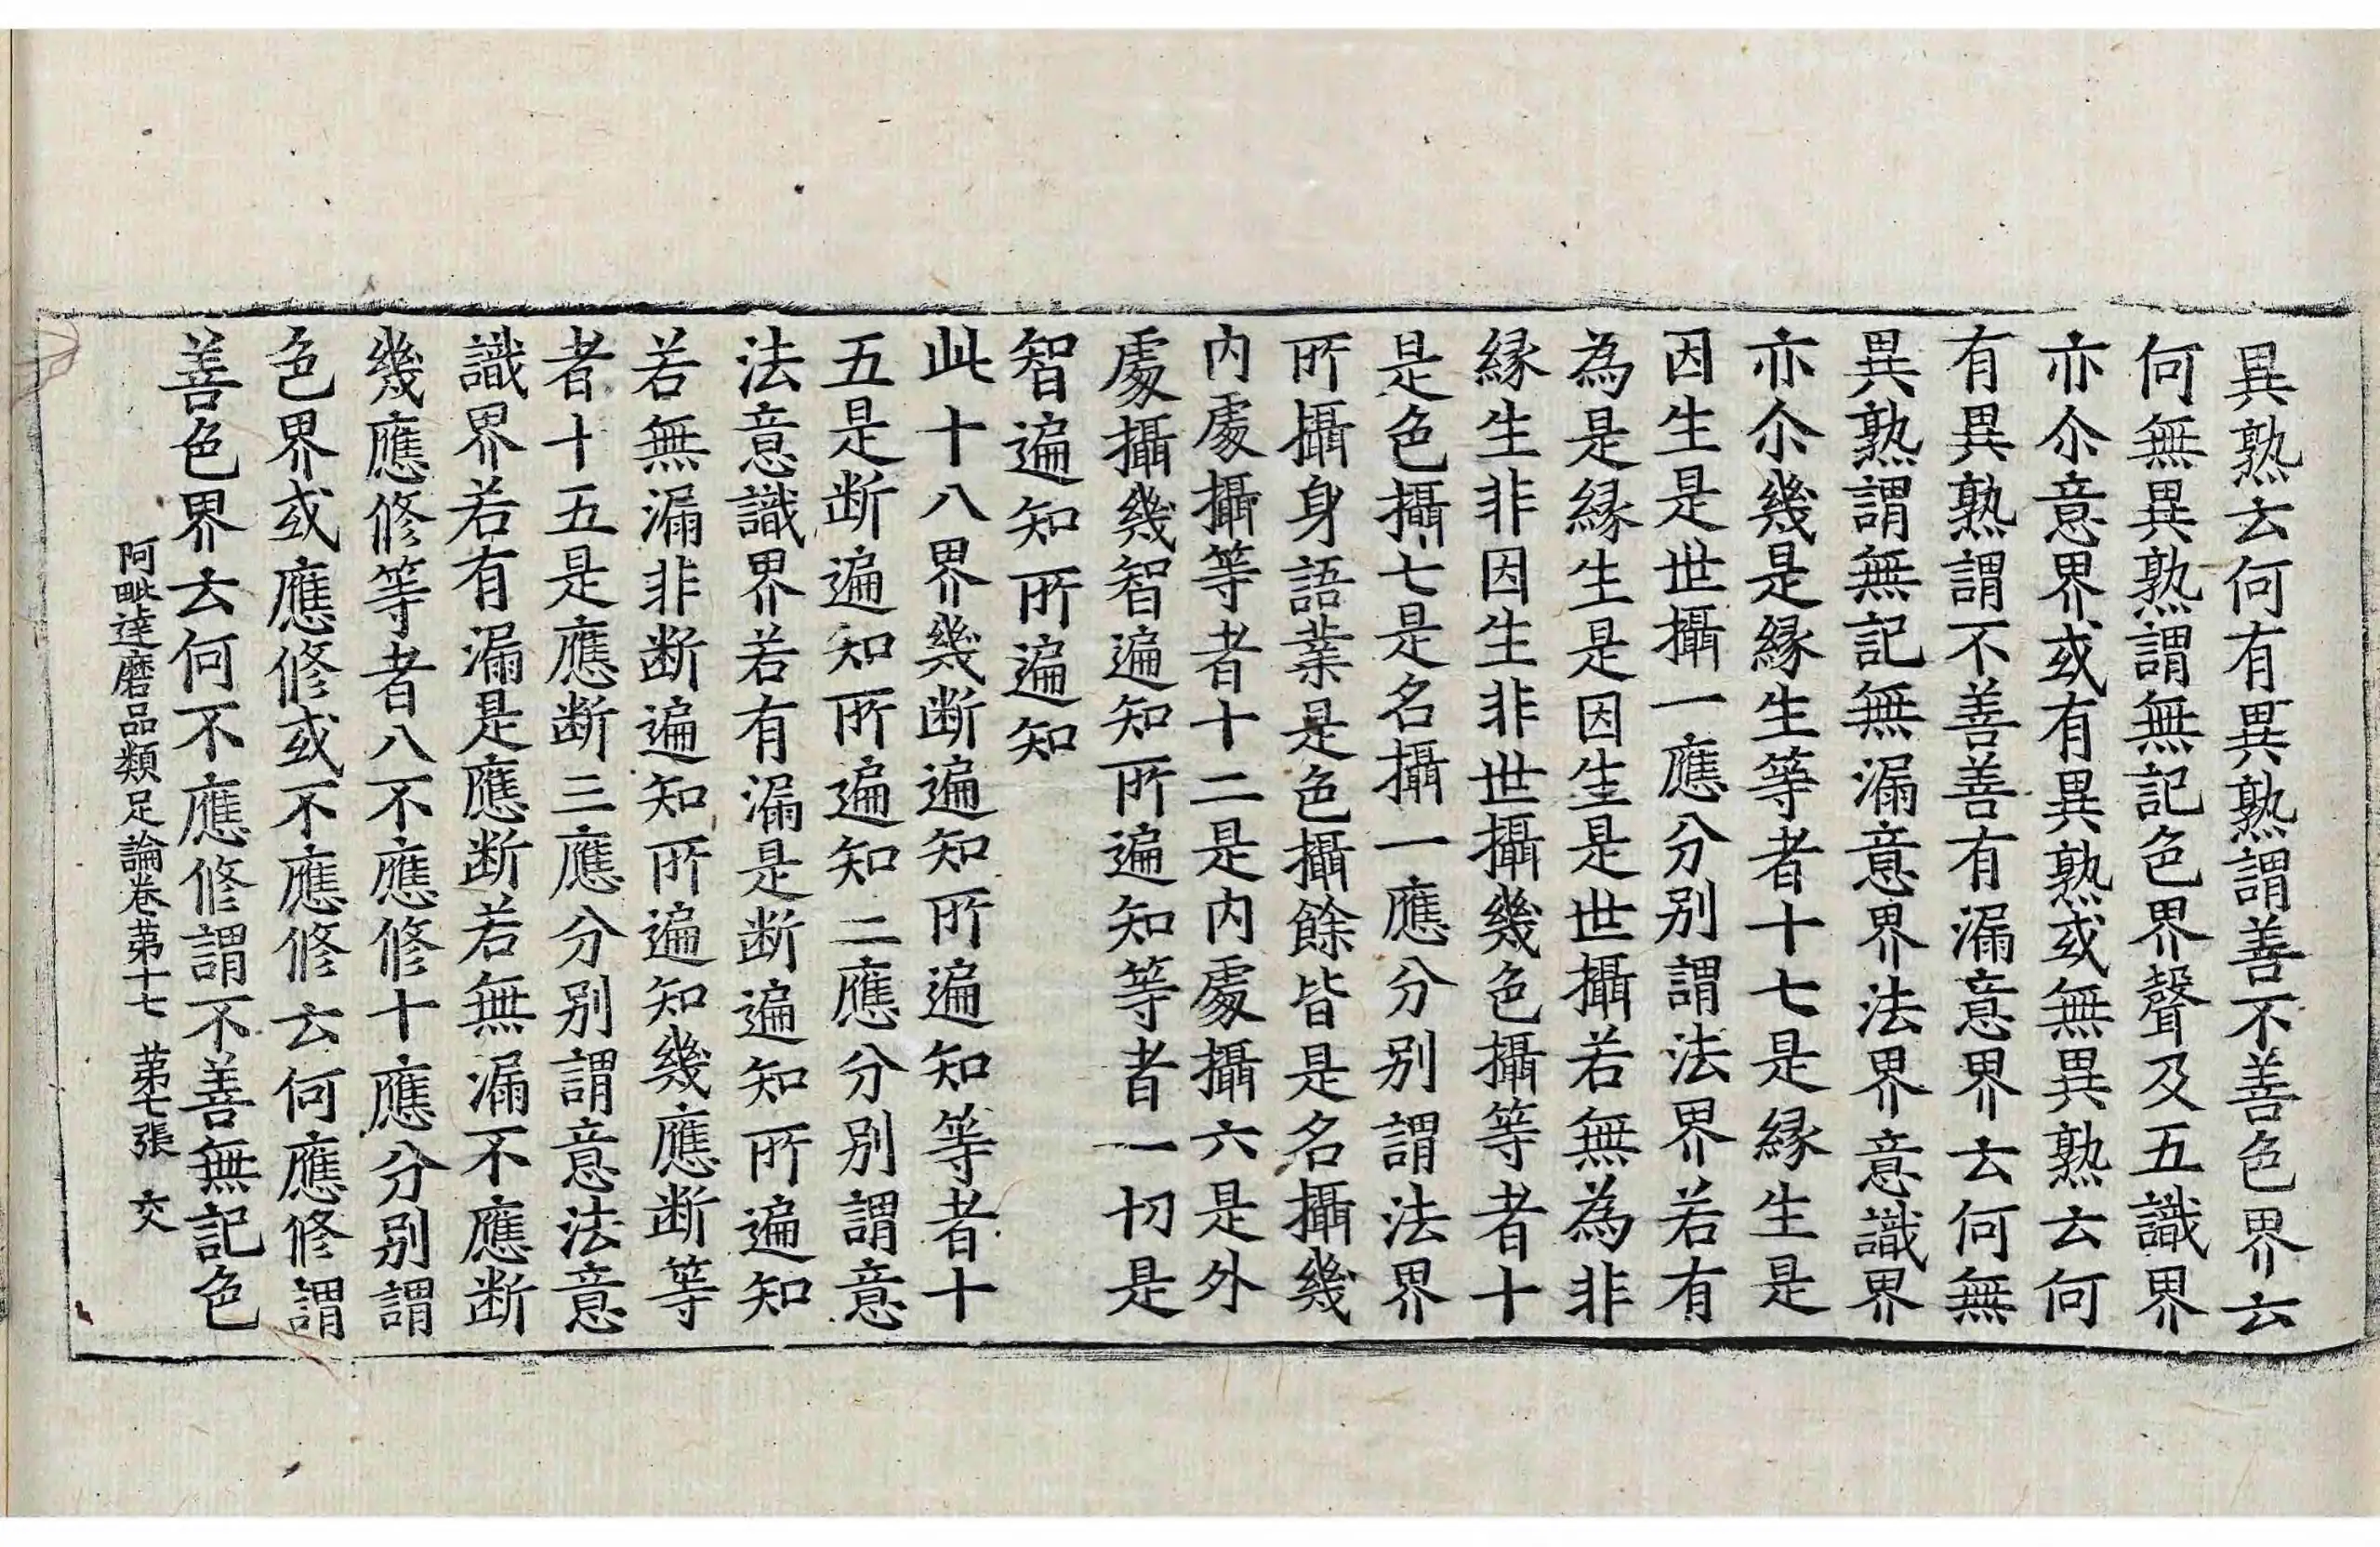 異熟云何有異熟謂善不善色界云
何無異熟謂無記色界聲及五識界
亦尒意界或有異熟或無異熟云何
有異熟謂不善善有漏意界云何無
異熟謂無記無漏意界法界意識界
亦尒幾是縁生等者十七是縁生是
因生是世攝一應分别謂法界若有
為是縁生是因生是世攝若無為非
縁生非因生非世攝幾色攝等者十
是色攝七是名攝一應分别謂法界
所攝身語業是色攝餘皆是名攝幾
内處攝等者十二是内處攝六是外
處攝幾智遍知所遍知等者一切是
智遍知所遍知
此十八界幾断遍知所遍知等者十
五是断遍知所遍知二應分别謂意
法意識界若有漏是断遍知所遍知
若無漏非断遍知所遍知幾應断等
者十五是應断三應分别謂意法意
識界若有漏是應断若無漏不應断
幾應修等者八不應修十應分别謂
色界或應修或不應修云何應修謂
善色界云何不應修謂不善無記色
阿毗達磨品類足論卷第十七 第七張 交